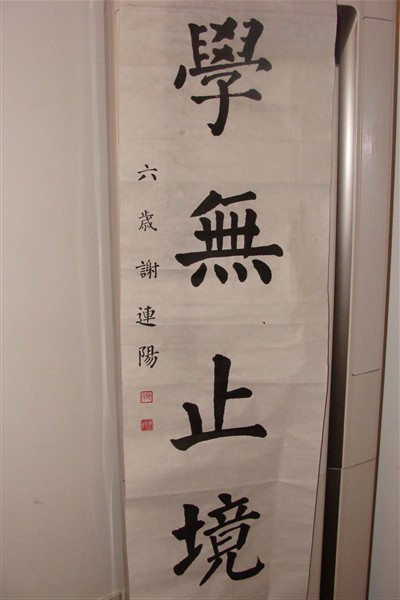 學無止境
六歲謝連陽